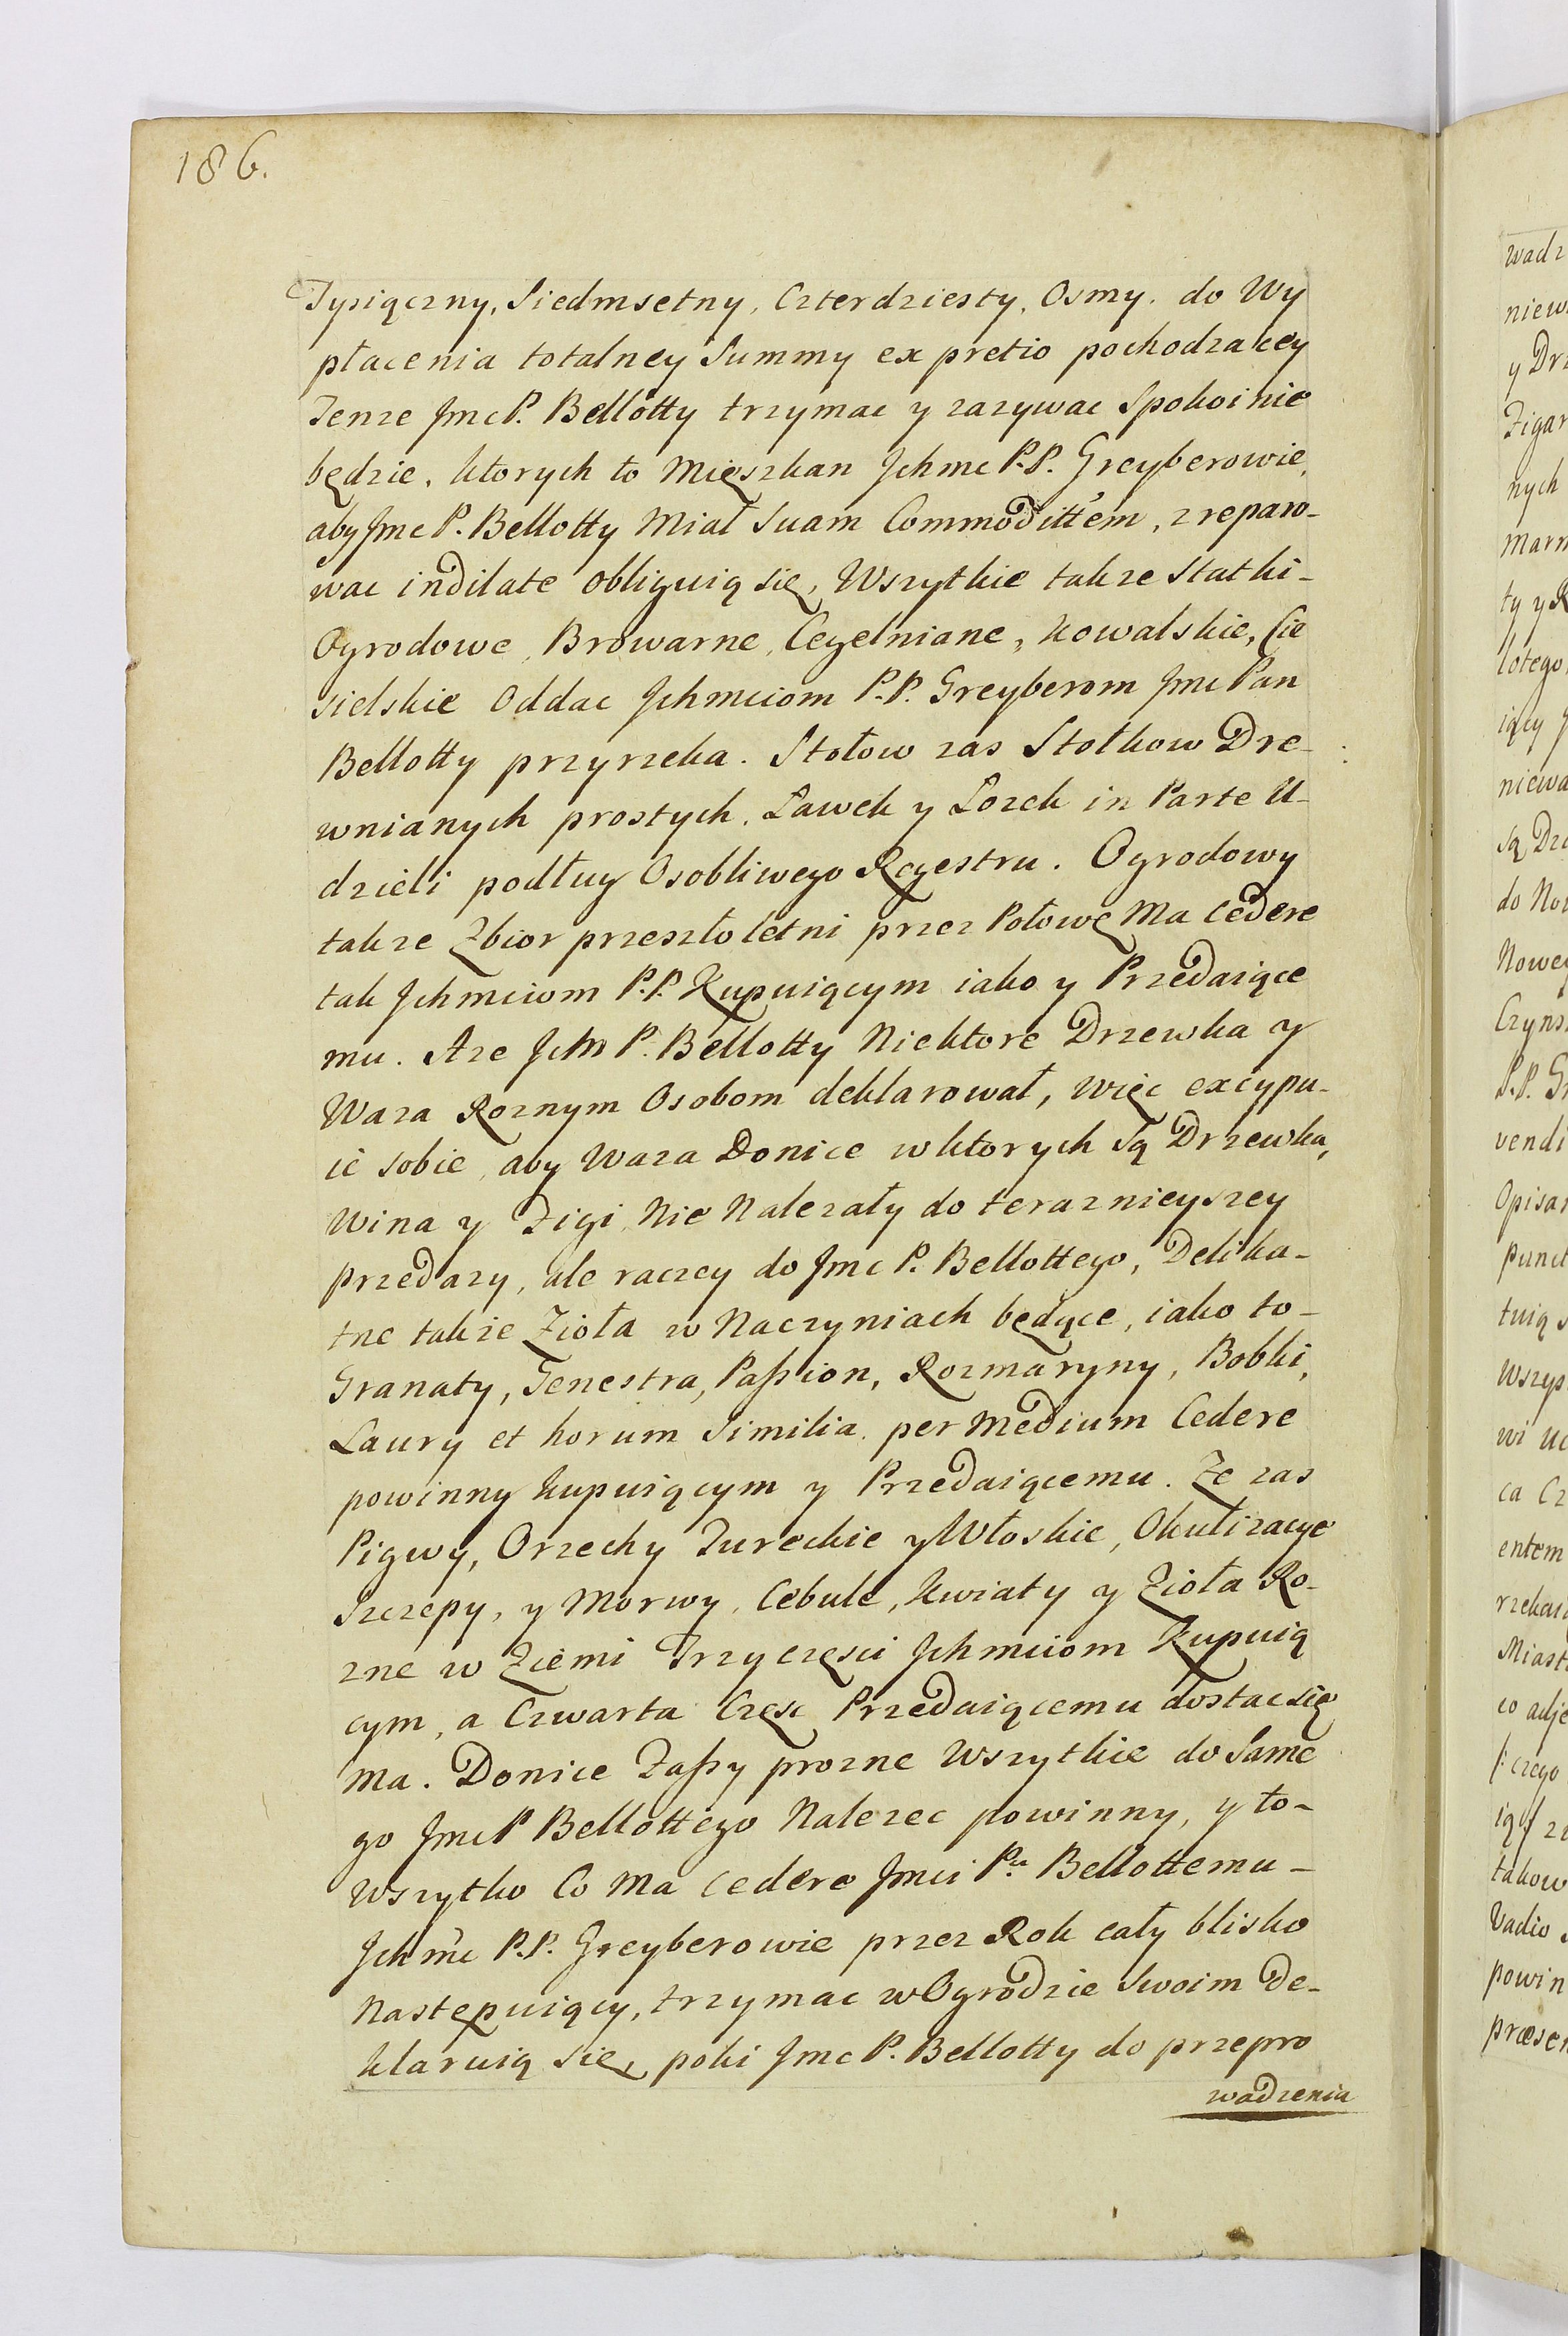 186.
Tysiączny, Siedmsetny, Czterdziesty, Osmy. do Wy
płacenia totalney Summy ex pretio pochodzacey
Tenze Jmc P. Bellotty trzymac y zazywac Spokoinie
będzie, ktorych to Mięszkan Jchmc P.P. Greyberowie,
aby Jmc P. Bellotty Miał Suam Commodittem, zreparo-
wac indilate obliguią się, Wszytkie takze Statki-
Ogrodowe, Browarne, Cegelniane, kowalskie, Cie
sielskie Oddac Jchmciom P.P. Greyberom Jmc Pan
Bellotty przyrzeka. Stołow zas Stołkow Dre-
wnianych prostych, Ławek y Łozek in Parte U-
dzieli podług Osobliwego Regestru. Ogrodowy
takze Zbior przeszłoletni przez Połowę Ma Cedere
tak Jchmciom P.P. Kupuiącym iako y Przedaiące
mu. Aze Jchm P. Bellotty Niektore Drzewka y
Waza Roznym Osobom deklarował, więc excypu-
ie sobie, aby Waza Donice wktorych Są Drzewka,
Wina y Figi, Nie Nalezały do teraznieyszey
przedazy, ale raczey do Jmc P. Bellottego, Delika-
tne takze Zioła w Naczyniach będące, iako to-
Granaty, Genestra, Paßion, Rozmaryny, Bobki,
Laury et horum Similia per Medium Cedere
powinny kupuiącym y Przedaiącemu. Ze zas
Pigwy, Orzechy Tureckie y Włoskie, Okulizacye
Szczepy, y Morwy, Cebule, kwiaty y Zioła Ro-
zne w Ziemi Trzy częsci Jchmciom Kupuią
cym, a Czwarta Częsc Przedaiącemu dostac się
Ma. Donice Faßy prozne Wszytkie do Same
go Jmc P Bellottego Nalezec powinny, y to-
wszytko Co Ma Cedere Jmci Pu Bellottemu-
Jchmc P.P. Greyberowie przez Rok cały blisko
Następuiący, trzymac w Ogrodzie Swoim De-
klaruią się, poki Jmc P. Bellotty do przepro
wadzenia